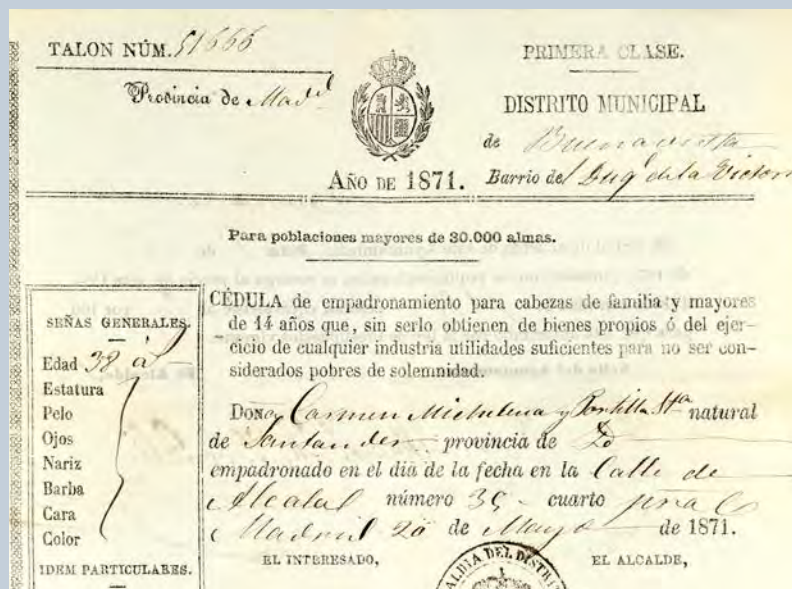 TALON NÚM. 51666
Provincia de Mad.d
AÑO DE 1871.
PRIMERA CLASE.
DISTRITO MUNICIPAL
de Buenavista
Barrio del Duq de la Victor
Para poblaciones mayores de 30.000 almas.
SEÑAS GENERALES.
Edad 38 a
Estatura
Pelo
Ojos
Nariz
Barba
Cara
Color
IDEM PARTICULARES.
CÉDULA de empadronamiento para cabezas de familia y mayores
de 14 años que, sin serlo obtienen de bienes propios ó del ejer-
cicio de cualquier industria utilidades suficientes para no ser con-
siderados pobres de solemnidad.
DONa Carmen Michelena y Portilla natural
de Santander provincia de
empadronado en el dia de la fecha en la Calle de
Alcalá número cuarto
Madrid 20 de Mayo de 1871.
EL INTERESADO,
EL ALCALDE,
ALDIA DEL DISTRI